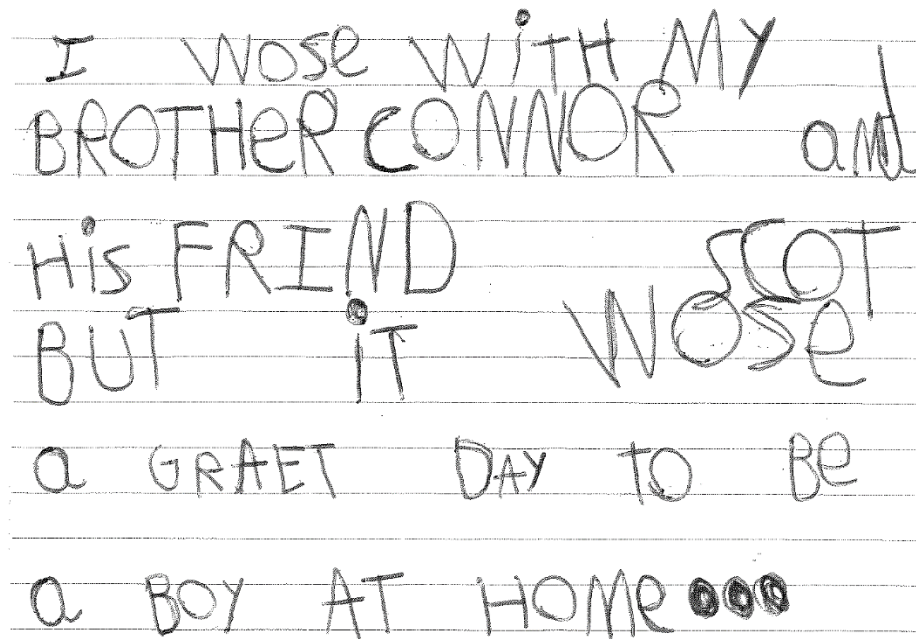 I WOSe WiTH MY
BROTHeR CONNOR and
His FRIND SCOT
BUT iT WOSe
a GRAET DAY TO Be
a BOY AT HOMe...